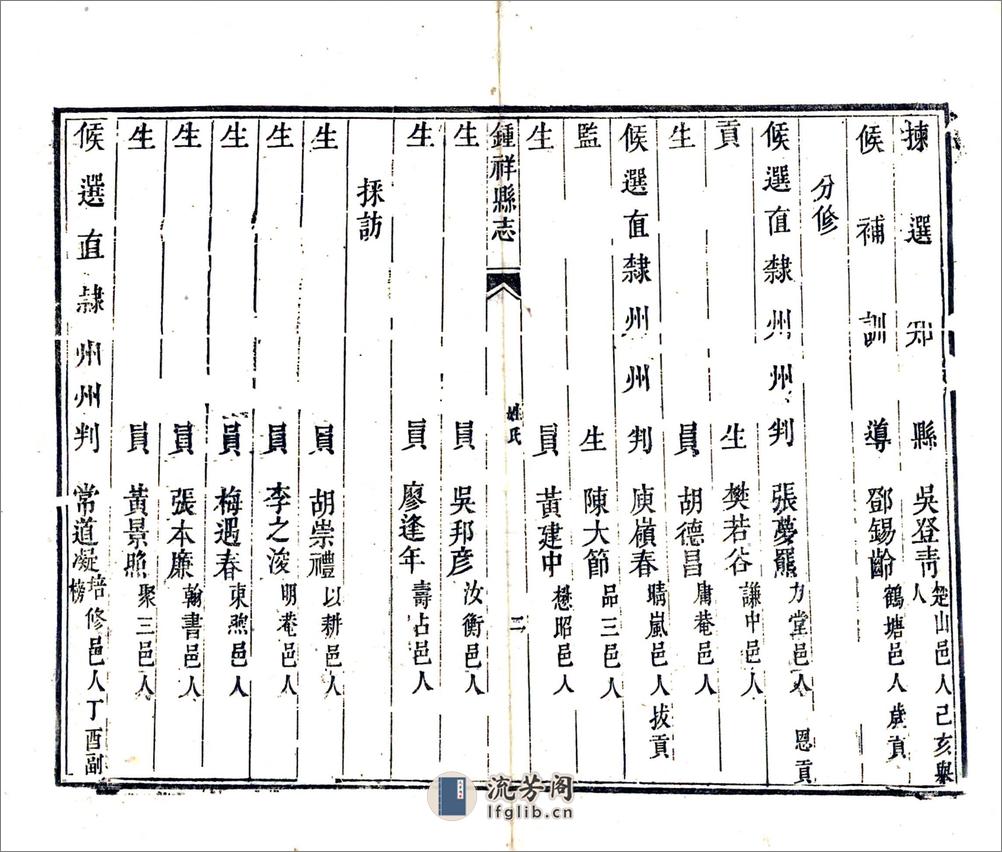 揀選知縣吳登青楚山邑人己亥舉人
候補訓導鄧錫齡鶴塘邑人歲貢
分修
候選直隸州州判張夢羆力堂邑人恩貢
貢生樊若谷謙中邑人
生員胡德昌庸菴邑人
候選直隸州州判庾嶺春晴嵐邑人拔貢
監生陳大節品三邑人
生員黃建中懋昭邑人
鍾祥縣志
姓氏
二
生員吳邦彥汝衡邑人
生員廖逢年壽占邑人
採訪
生員胡崇禮以耕邑人
生員李之浚明菴邑人
生員梅遇春東㷛邑人
生員張本廉翰書邑人
生員黃景煦聚三邑人
候選直隸州州判常道凝培修邑人丁酉副榜
流芳阁
lfglib.cn